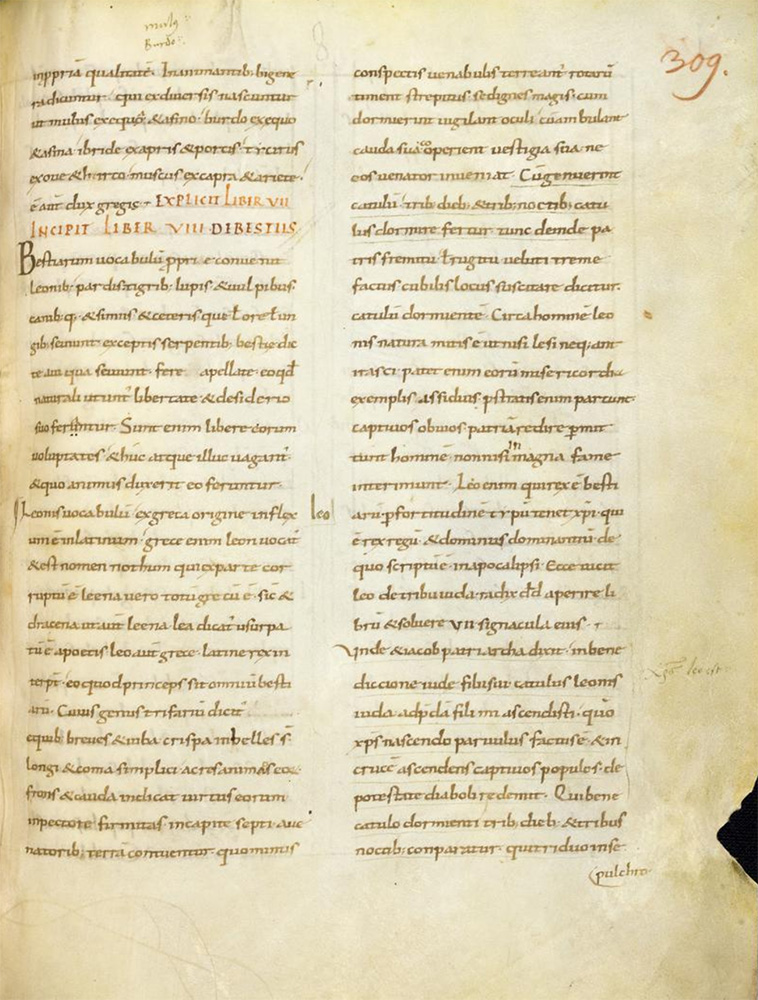 mulus
Burdo
309.
inppriā qualitatē. Inanimantib; bigene
ra dicuntur. qui exdiuersis nascuntur
ut mulus exequa &asino. burdo exequo
&asina ibride exapris &porcis. tyrirus
exoue &hirco. muscus excapra &ariete.
ē aut dux gregis. EXPLICIT LIBER VII
INCIPIT LIBER VIII DEBESTIIS
Bestiarum uocabulū pprie conuenit
leonib; pardis tigrib; lupis &uulpibus.
canib; q. &simiis &ceteris que ł ore ł un
gib; seuiunt exceptis serpentib; bestie dic
te aut qua seuiunt. fere apellate eoqđ
naturali utunt libertate &desiderio
suo ferantur. Sunt enim libere eorum
uoluptates &huc atque illuc uagant.
&quo animus duxerit eo feruntur.
Leonis uocabulū exgreca origine inflex
um ē inlatinum. grece enim leon uocat
&est nomen nothum quia exparte cor
ruptū ē leena uero totū grecū ē. sic &
dracena ut aut leena. lea dicat usurpa
tū ē apoetis leo aut grece. latine rex in
terpt. eo quod princeps sit omniū besti
arū. Cuius genus trifariū dicit
e quib; breues &iuba crispa inbelles s.
longi &coma simplici acres animos eoꝝ
frons &cauda indicat uirtus eorum
inpectore firmitas incapite septi aue
natorib; terrā contuentur. quominus
leo
conspectis uenabulis terreant rotarū
timent strepitus sedignes magis. cum
dormierint uigilant oculi cū ambulant
cauda sua operient uestigia sua ne
eos uenator inueniat. Cū genuerint
catulū trib; dieb; &trib; noctib; catu
lus dormire fertur tunc deinde pa
tris fremitu ł rugitu ueluti treme
factus cubilis locus suscitare dicitur.
catulū dormientē. Circa hominē leo
nis natura mitis ē ut nisi lesi neq;ant
irasci. patet enim eorū misericordia
exemplis assiduis pstratis enim parcunt.
captiuos obuios patriā redire pmit
tunt hominē nonnisi in magna fame
interimunt. Leo enim qui rex ē besti
arū p fortitudinē typū tenet xpi. qui
ē rex regū &dominus dominantiū de
quo scriptū ē inapocalipsi. Ecce uicit
leo de tribu iuda radix dđ aperire li
brū &soluere VII signacula eius.
Vnde &iacob patriarcha dixit inbene
diccione iude filii sui catulus leonis
iuda. ad pdā fili mi ascendisti. quo
xps nascendo paruulus factus ē &in
crucē ascendens captiuos populos. de
potestate diaboli redemit. Qui bene
catulo dormienti trib; dieb; &tribus
noctib; conparatur. qui triduo inse
pulchro